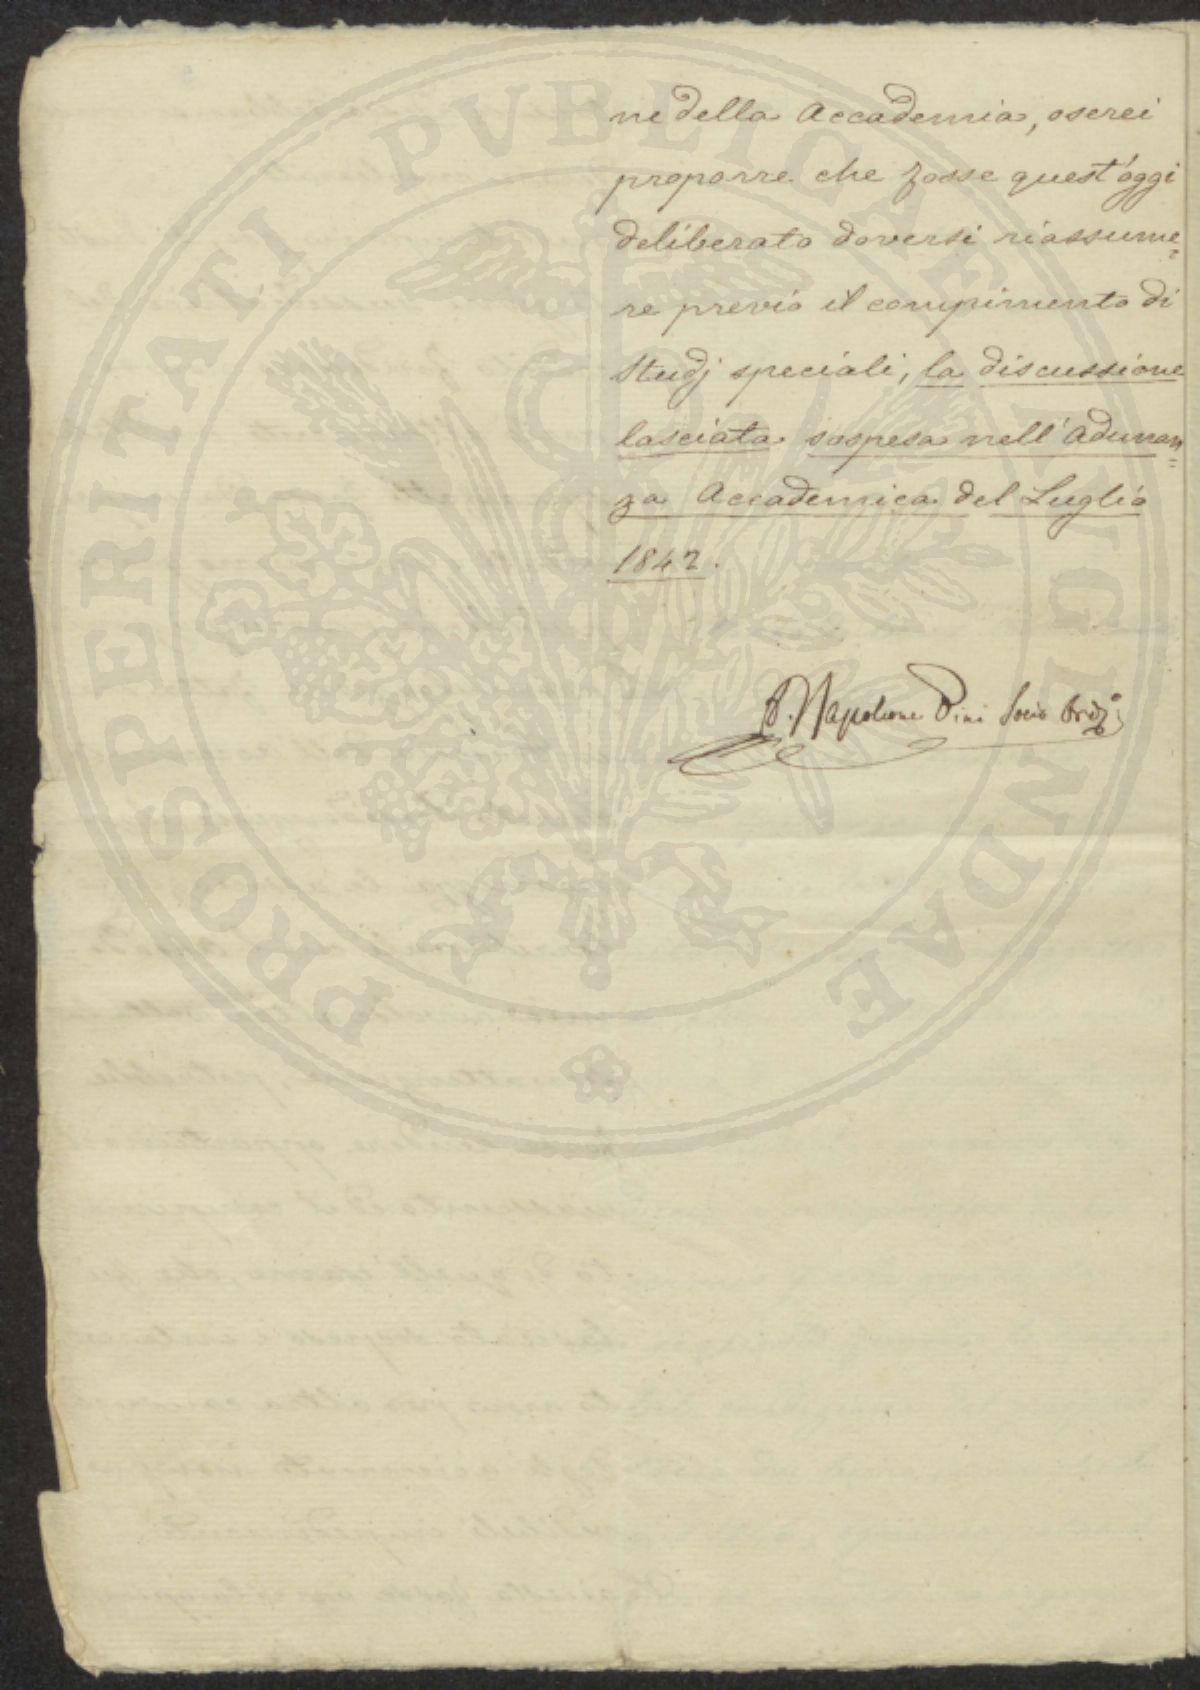 ne della Accademia, oserei
proporre che fosse quest'oggi
deliberato doversi riassume=
re previo il compimento di
Studj speciali, la discussione
lasciata sospesa nell'Adunan=
za Accademica del Luglio
1842.
D. Napoleone Pini Socio Ord.º
PROSPERITATI PVBLICAE AVGENDAE